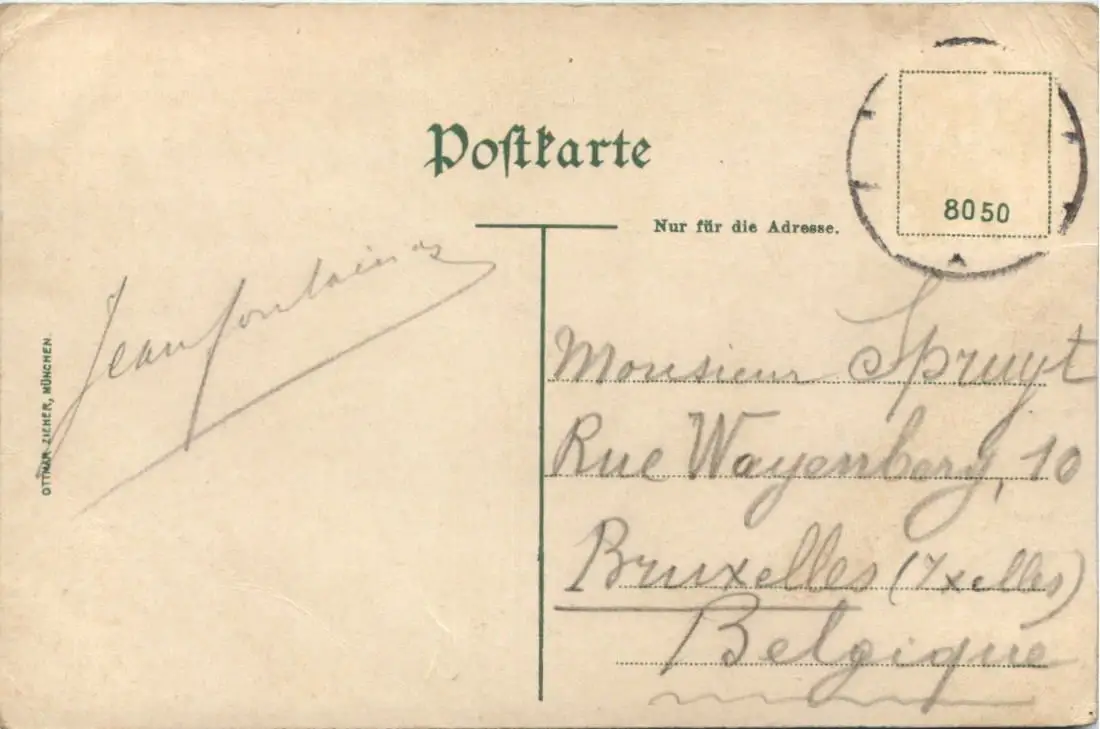 Postkarte
8050
Nur für die Adresse.
Jean Fontaine
OTTMAR ZIEHER, MÜNCHEN.
Monsieur Spruyt
Rue Wayenberg, 10
Bruxelles (Ixelles)
Belgique